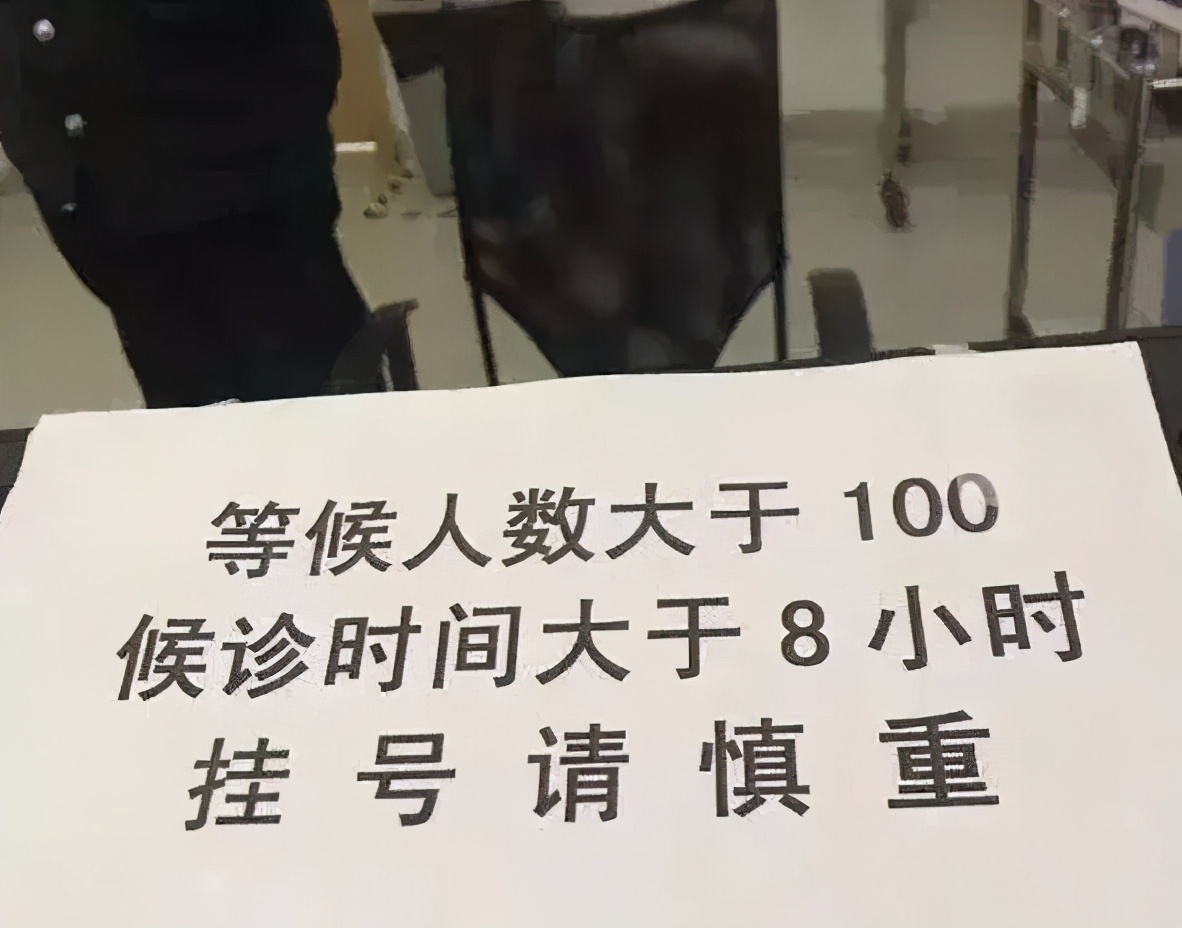 等候人数大于 100
候诊时间大于 8 小时
挂号请慎重